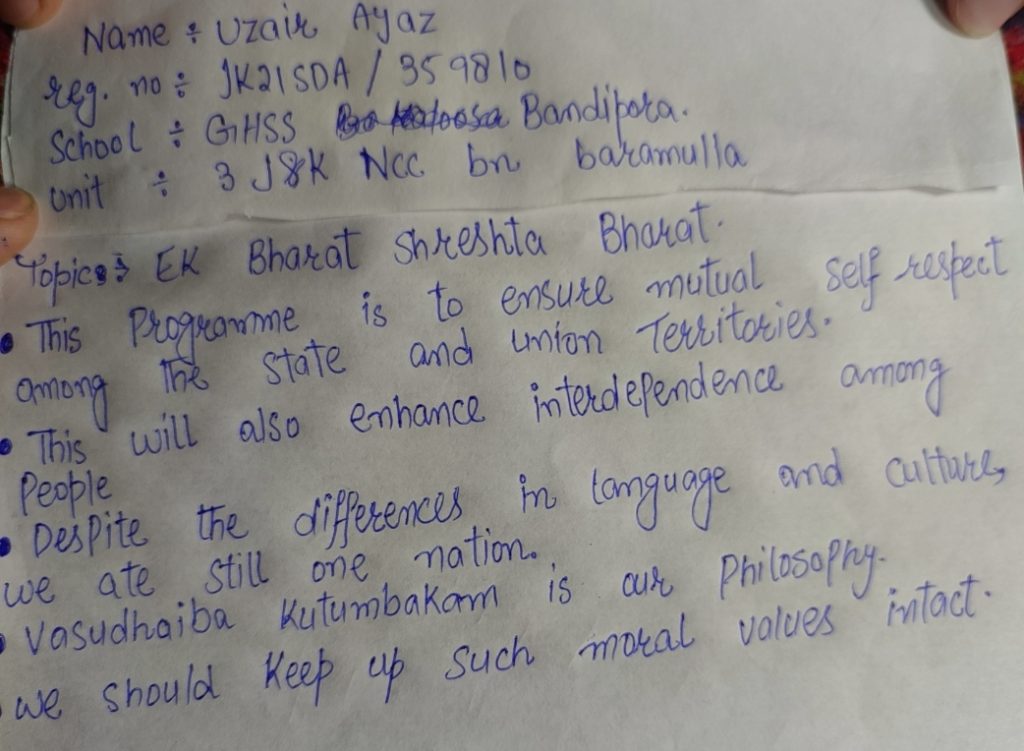 Name ÷ Uzair Ayaz
reg. no ÷ JK21SDA / 359810
School ÷ GHSS Bandipora.
Unit ÷ 3 J&K NCC bn baramulla
Topic ÷ EK Bharat Shreshta Bharat.
• This Programme is to ensure mutual self respect
among the state and union Territories.
• This will also enhance interdependence among
People
• Despite the differences in language and culture,
we ate still one nation.
• Vasudhaiba Kutumbakam is our Philosophy.
• we should Keep up such moral values intact.